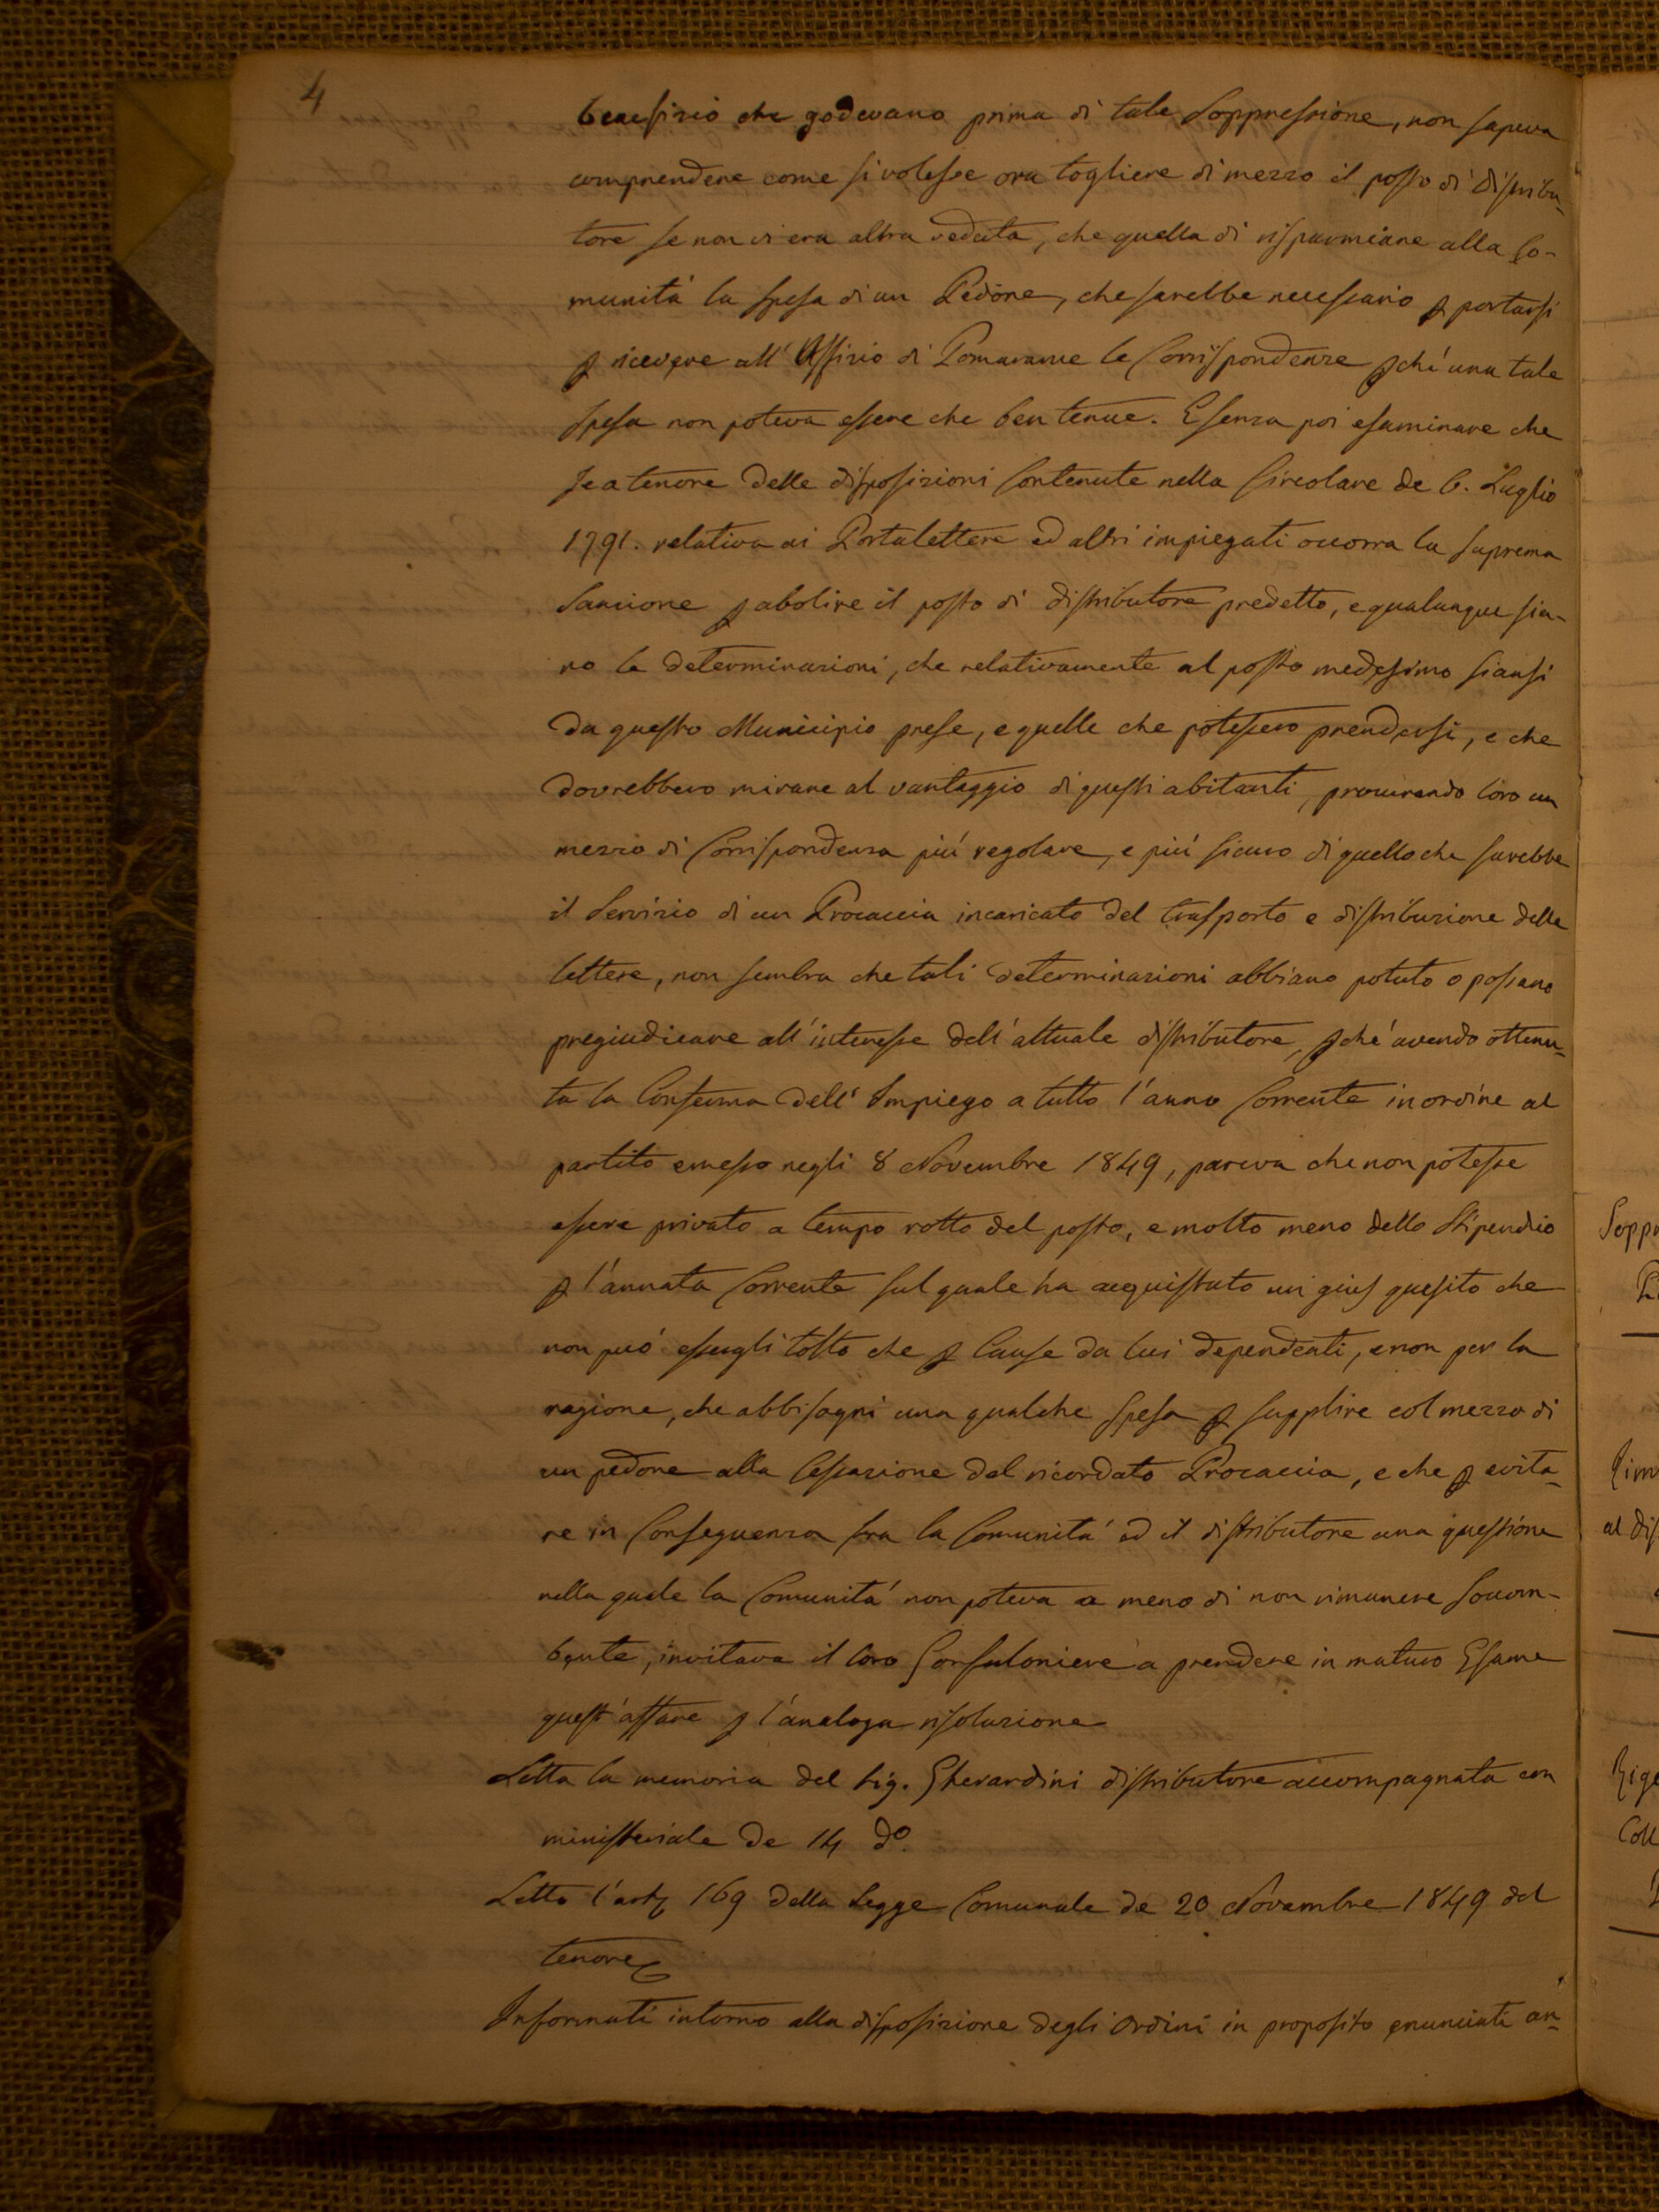 4
benefizio che godevano prima di tale Soppressione, non sapeva
comprendere come si volesse ora togliere di mezzo il posto di distribu-
tore se non vi era altra veduta, che quella di risparmiare alla Co-
munità la spesa di un Pedone, che sarebbe necessario p portarsi
p ricevere all' Uffizio di Pomarance le Corrispondenze pchè una tale
spesa non poteva essere che ben tenue. E senza poi esaminare che
se a tenore delle disposizioni Contenute nella Circolare de 6. Luglio
1791. relativa ai Portalettere ed altri impiegati occorra la suprema
Sanzione p abolire il posto di distributore predetto, e qualunque sia-
no le determinazioni, che relativamente al posto medesimo siansi
da questo Municipio prese, e quelle che potessero prendersi, e che
dovrebbero mirare al vantaggio di questi abitanti, procurando loro un
mezzo di Corrispondenza più regolare, e più sicuro di quello che sarebbe
il Servizio di un Procaccia incaricato del trasporto e distribuzione delle
lettere, non sembra che tali determinazioni abbiano potuto o possano
pregiudicare all'interesse dell'attuale distributore, pchè avendo ottenu-
ta la Conferma dell' Impiego a tutto l'anno Corrente in ordine al
partito emesso negli 8 Novembre 1849, pareva che non potesse
essere privato a tempo rotto del posto, e molto meno dello Stipendio
p l'annata Corrente sul quale ha acquistato un gius quesito che
non può essergli tolto che p Cause da lui dependenti, e non per la
ragione, che abbisogni una qualche spesa p supplire col mezzo di
un pedone alla Cessazione del ricordato Procaccia, e che p evita-
re in Conseguenza fra la Comunità ed il distributore una questione
nella quale la Comunità non poteva a meno di non rimanere Soccom-
bente, invitava il loro Gonfaloniere a prendere in maturo Esame
quest'affare p l'analoga risoluzione
Letta la memoria del Sig. Gherardini distributore accompagnata con
ministeriale de 14 do.
Letto l'art 169 della Legge Comunale de 20 Novembre 1849 del
tenore
Informati intorno alla disposizione degli Ordini in proposito enunciati an-